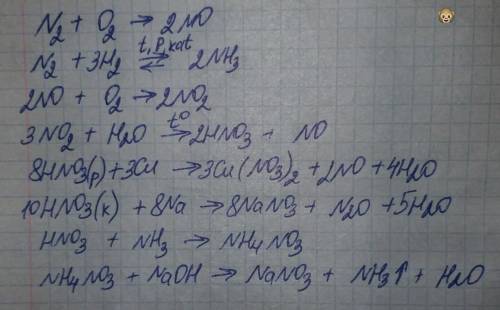 N2 + O2 → 2NO
N2 + 3H2 t, P, kat ⇌ 2NH3
2NO + O2 → 2NO2
3NO2 + H2O t° → 2HNO3 + NO
8HNO3(р) + 3Cu → 3Cu(NO3)2 + 2NO + 4H2O
10HNO3(к) + 8Na → 8NaNO3 + N2O + 5H2O
HNO3 + NH3 → NH4NO3
NH4NO3 + NaOH → NaNO3 + NH3↑ + H2O